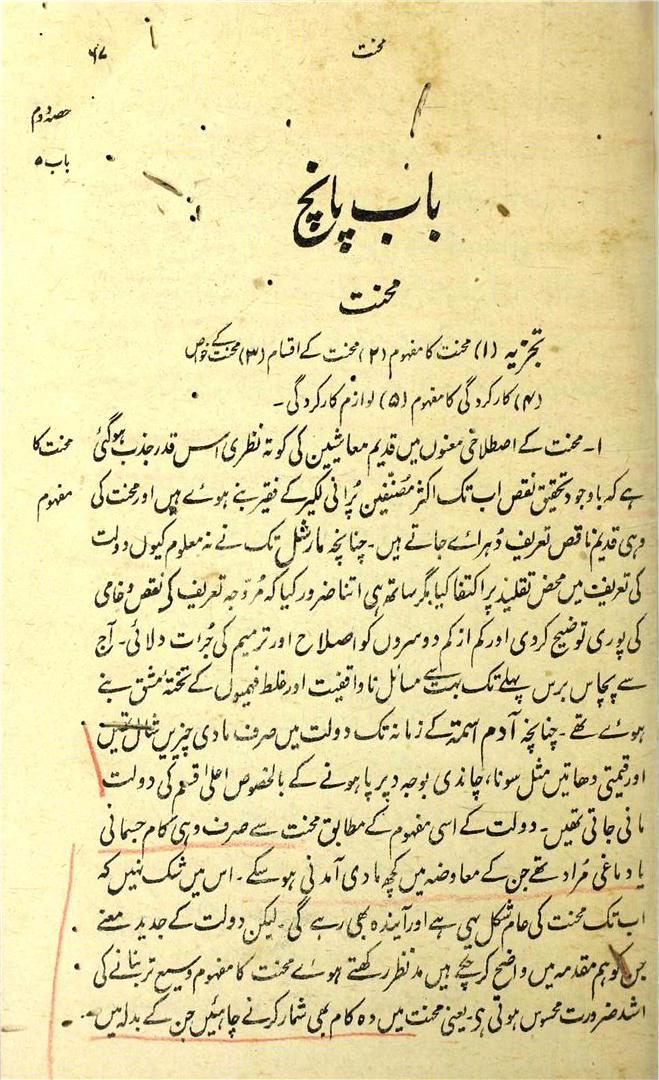 محنت
۶۷
حصہ دوم
باب ۵
باب پانچ
محنت
تجزیہ (۱) محنت کا مفہوم (۲) محنت کے اقسام (۳) محنت کے خواص
(۴) کارکردگی کا مفہوم (۵) لوازم کارکردگی ۔
محنت کا
مفہوم
۱۔ محنت کے اصطلاحی معنوں میں قدیم معاشیین کی کوتہ نظری اسس قدر جذب ہوگئی
ہے کہ باوجود تحقیق نقص اب تک اکثر مصنّفین پُرانی لکیر کے فقیر بنے ہوے ہیں اور محنت کی
وہی قدیم ناقص تعریف دُہراے جاتے ہیں۔ چنانچہ مارشل تک نے نہ معلوم کیوں دولت
کی تعریف میں محض تقلید پر اکتفا کیا مگر ساتھ ہی اتنا ضرور کیا کہ مُروّجہ تعریف کی نقص و خامی
کی پوری توضیح کردی اور کم از کم دوسروں کو اصلاح اور ترمیم کی جُرات دلائی۔ آج
سے پچاس برس پہلے تک بہت سے مسائل ناواقفیت اور غلط فہمیوں کے تختۂ مشق بنے
ہوے تھے ۔ چنانچہ آدم اسمتھ کے زمانہ تک دولت میں صرف مادی چیزیں شامل تھیں
اور قیمتی دھاتیں مثل سونا، چاندی بوجہ دیرپا ہونے کے بالخصوص اعلیٰ قسم کی دولت
مانی جاتی تھیں۔ دولت کے اسی مفہوم کے مطابق محنت سے صرف وہی کام جسمانی
یا دماغی مُراد تھے جن کے معاوضہ میں کچھ مادی آمدنی ہوسکے ۔ اس میں شک نہیں کہ
اب تک محنت کی عام شکل یہی ہے اور آیندہ بھی رہے گی ۔ لیکن دولت کے جدید معنے
جن کو ہم مقدمہ میں واضح کرچکے ہیں مدنظر رکھتے ہوے محنت کا مفہوم وسیع تر بنانے کی
اشد ضرورت محسوس ہوتی ہی۔ یعنی محنت میں وہ کام بھی شمار کرنے چاہئیں جن کے بدلہ میں